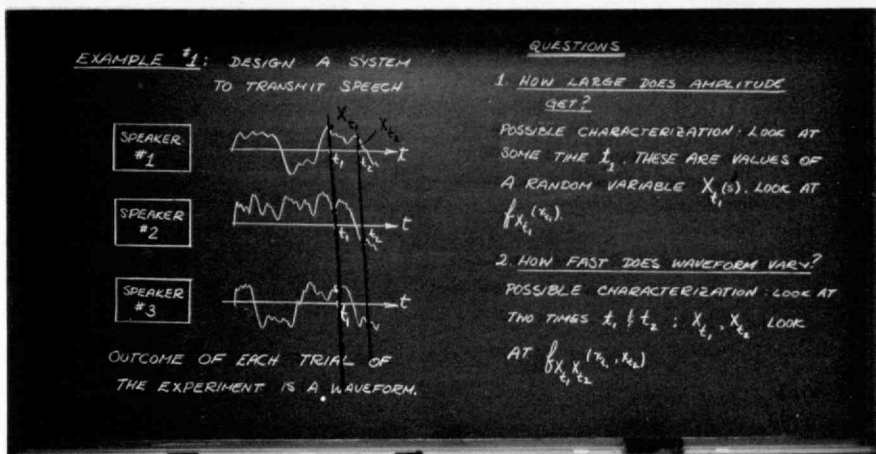 EXAMPLE #1: DESIGN A SYSTEM
TO TRANSMIT SPEECH
X_{t_1}
X_{t_2}
SPEAKER
#1
t_1
t_2
t
SPEAKER
#2
t_1
t_2
t
SPEAKER
#3
t_1
t
OUTCOME OF EACH TRIAL OF
THE EXPERIMENT IS A WAVEFORM.
QUESTIONS
1. HOW LARGE DOES AMPLITUDE
GET?
POSSIBLE CHARACTERIZATION: LOOK AT
SOME TIME t_1. THESE ARE VALUES OF
A RANDOM VARIABLE X_{t_1}(s). LOOK AT
f_{X_{t_1}}(x_{t_1}).
2. HOW FAST DOES WAVEFORM VARY?
POSSIBLE CHARACTERIZATION: LOOK AT
TWO TIMES t_1 & t_2 ; X_{t_1}, X_{t_2} LOOK
AT f_{X_{t_1} X_{t_2}}(x_{t_1}, x_{t_2})